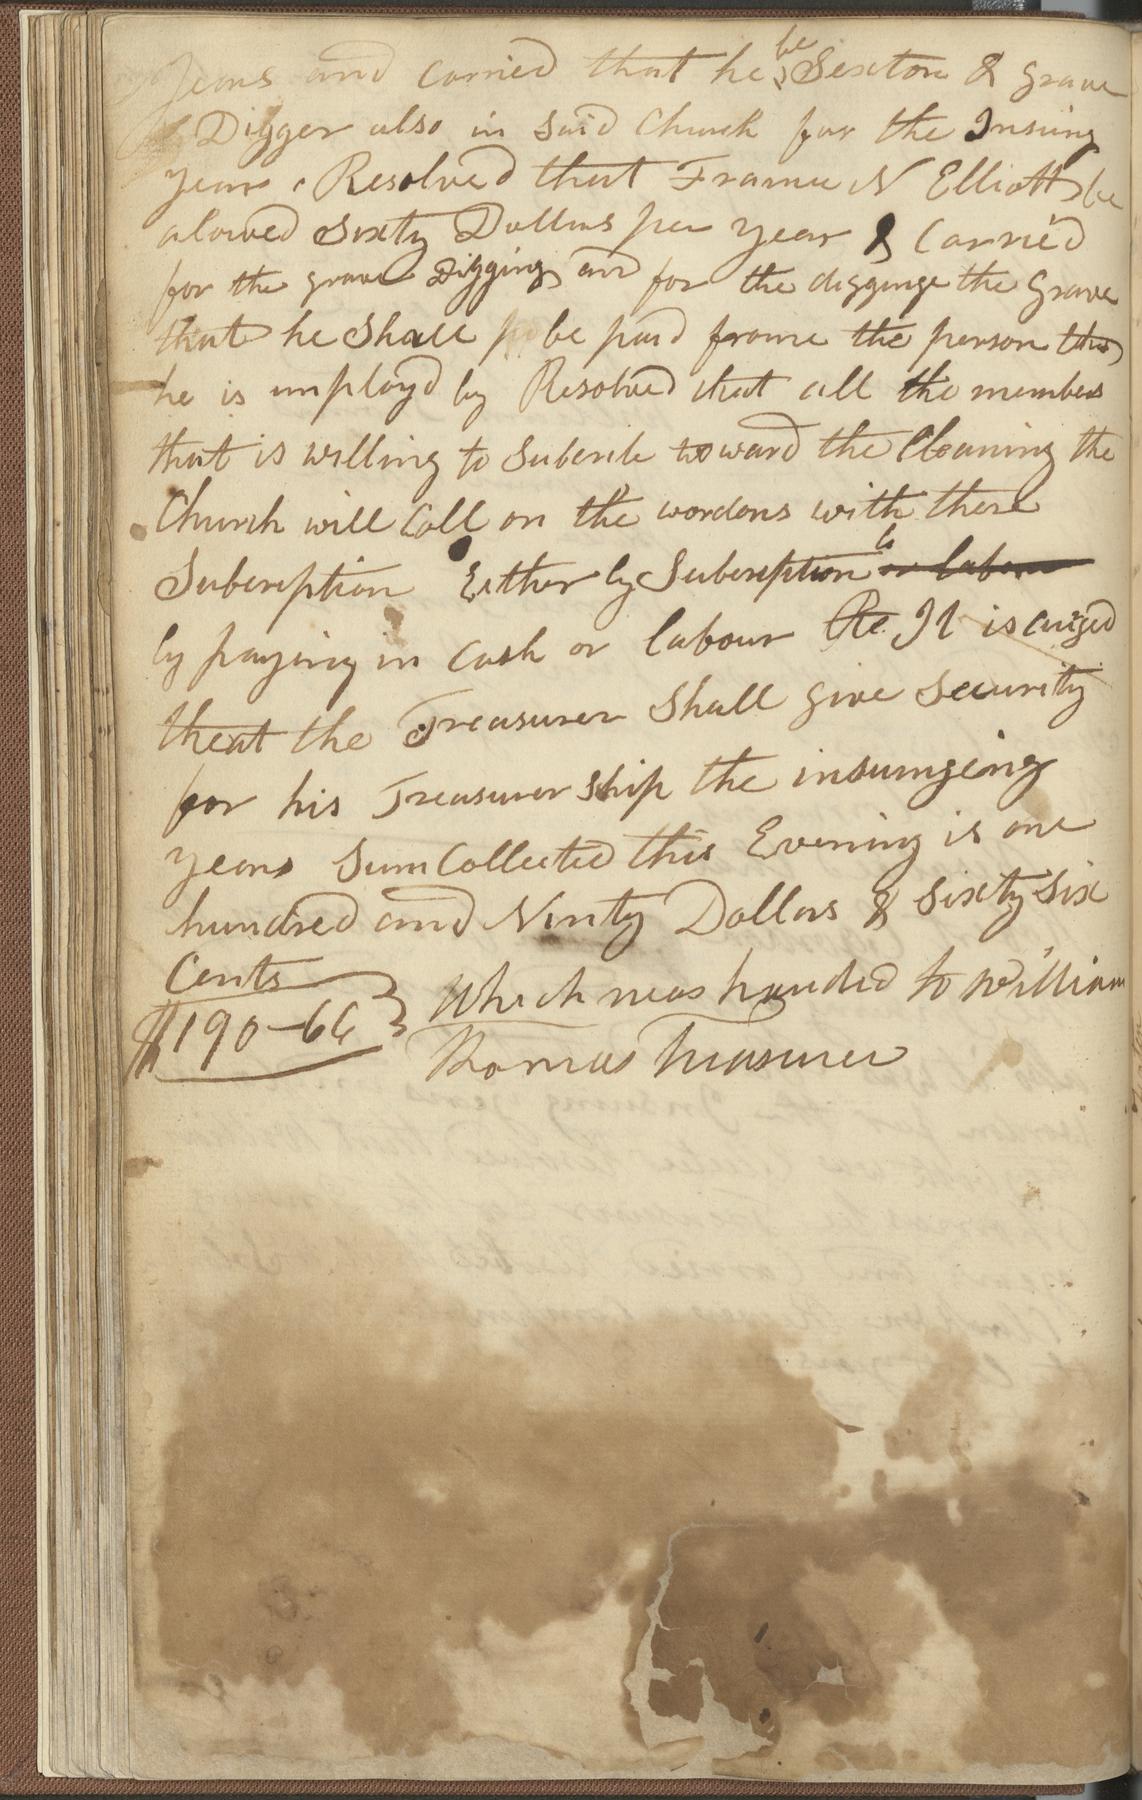 Years and Carried that he be Sexton & grave
Digger also in Said Church for the Insuing
year . Resolved that Frame N Elliott be
alowed Sixty Dollars per year & Carried
for the grave Digging and for the digginge the Grave
that he Shall be paid frome the person that
he is imployd by Resolved that all the members
that is willing to Subcribe toward the Cleaning the
Church will Call on the wordons with there
Subcription Either by Subcription or labour
by paying in Cash or labour Re It is
theat the Treasurer Shall give Security
for his Treasurer Ship the insumgeing
years Sum Collected this Evening is one
hundred and Ninty Dollars & Sixty Six
Cents
$190-66 } Which was handed to William
Thomas Treasurer